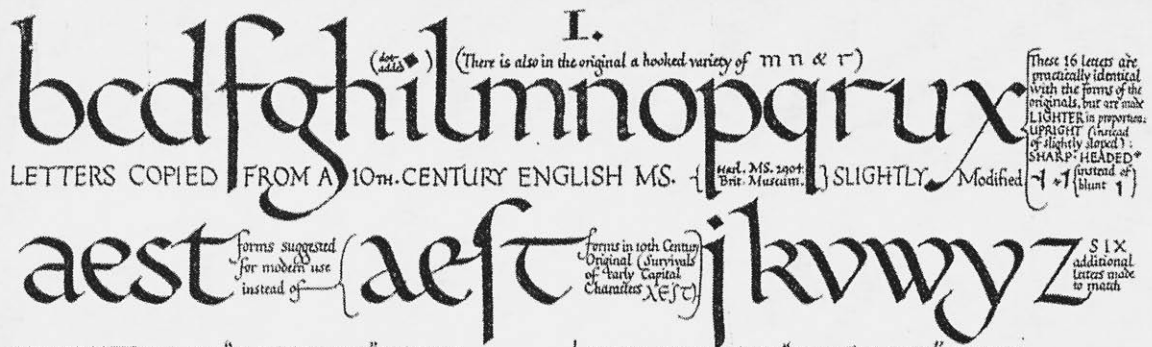 I.
(dot-
added ◆) (There is also in the original a hooked variety of m n & r)
bcdfghilmnopqrux
These 16 letters are
practically identical
with the forms of the
originals, but are made
LIGHTER in proportion:
UPRIGHT (instead
of slightly sloped):
SHARP-HEADED*
instead of
blunt
LETTERS COPIED FROM A 10TH. CENTURY ENGLISH MS. {Harl. MS. 2904.
Brit. Museum.} SLIGHTLY Modified
aest
forms suggested
for modern use
instead of
aeſt
forms in 10th Century
Original (Survivals
of early Capital
Characters
jkvwyz
SIX
additional
letters made
to match